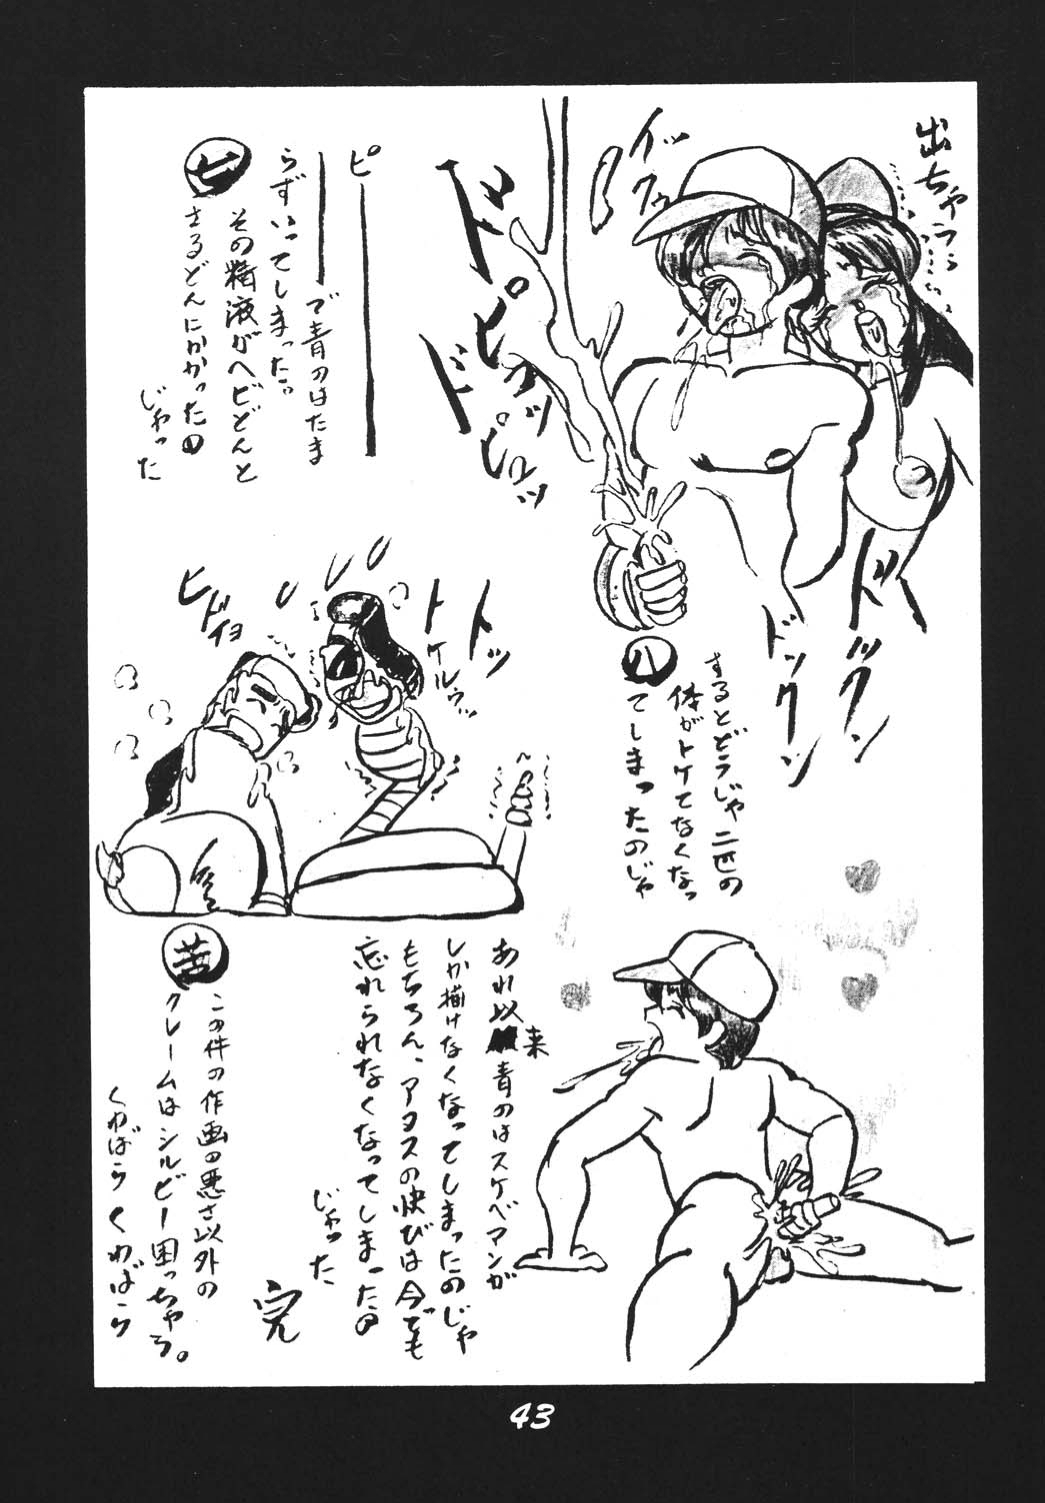 出ちゃうぅ……
イッ
クゥ
ドピュッ
ドピュッ
ドックン
ドックン
ピ――
――で青のはたま
らずいってしまったッ
七
その精液がヘビどんと
さるどんにかかったの
じゃった
八
するとどうじゃ二匹の
体がトケてなくなっ
てしまったのじゃ
トッ
トケルゥ…
ヒドイヨ
あれ以来青のはスケベマンガ
しか描けなくなってしまったのじゃ
もちろん、アヌスの快びは今でも
忘れられなくなってしまったの
じゃった
完
苦
この件の作画の悪さ以外の
クレームはシルビー困っちゃう。
くわばらくわばら
43